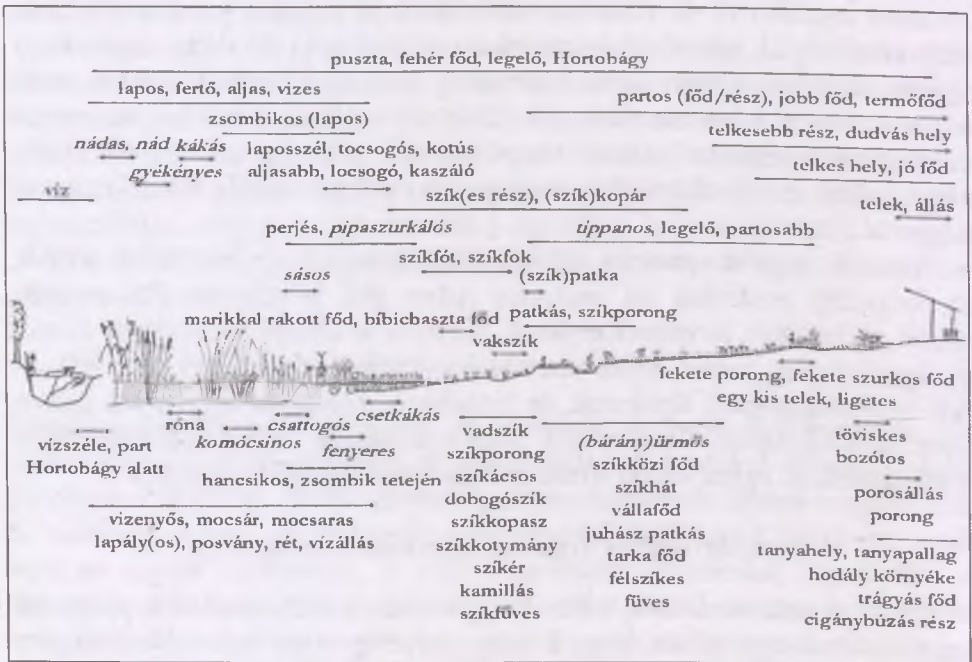 puszta, fehér főd, legelő, Hortobágy
lapos, fertő, aljas, vizes
partos (főd/rész), jobb főd, termőfőd
zsombikos (lapos)
telkesebb rész, dudvás hely
nádas, nád kákás
gyékényes
laposszél, tocsogós, kotús
aljasabb, locsogó, kaszáló
telkes hely, jó főd
víz
szík(es rész), (szík)kopár
telek, állás
perjés, pipaszurkálós
tippanos, legelő, partosabb
szíkfót, szíkfok
sásos
(szík)patka
marikkal rakott főd, bíbicbaszta főd
patkás, szíkporong
vakszík
fekete porong, fekete szurkos főd
egy kis telek, ligetes
csetkákás
róna
csattogós
komócsinos
fenyeres
vízszéle, part
Hortobágy alatt
hancsikos, zsombik tetején
vizenyős, mocsár, mocsaras
lapály(os), posvány, rét, vízállás
vadszík
szíkporong
szíkácsos
dobogószík
szíkkopasz
szíkkotymány
szíkér
kamillás
szíkfüves
(bárány)ürmös
szíkközi főd
szíkhát
vállafőd
juhász patkás
tarka főd
félszíkes
füves
töviskes
bozótos
porosállás
porong
tanyahely, tanyapallag
hodály környéke
trágyás főd
cigánybúzás rész